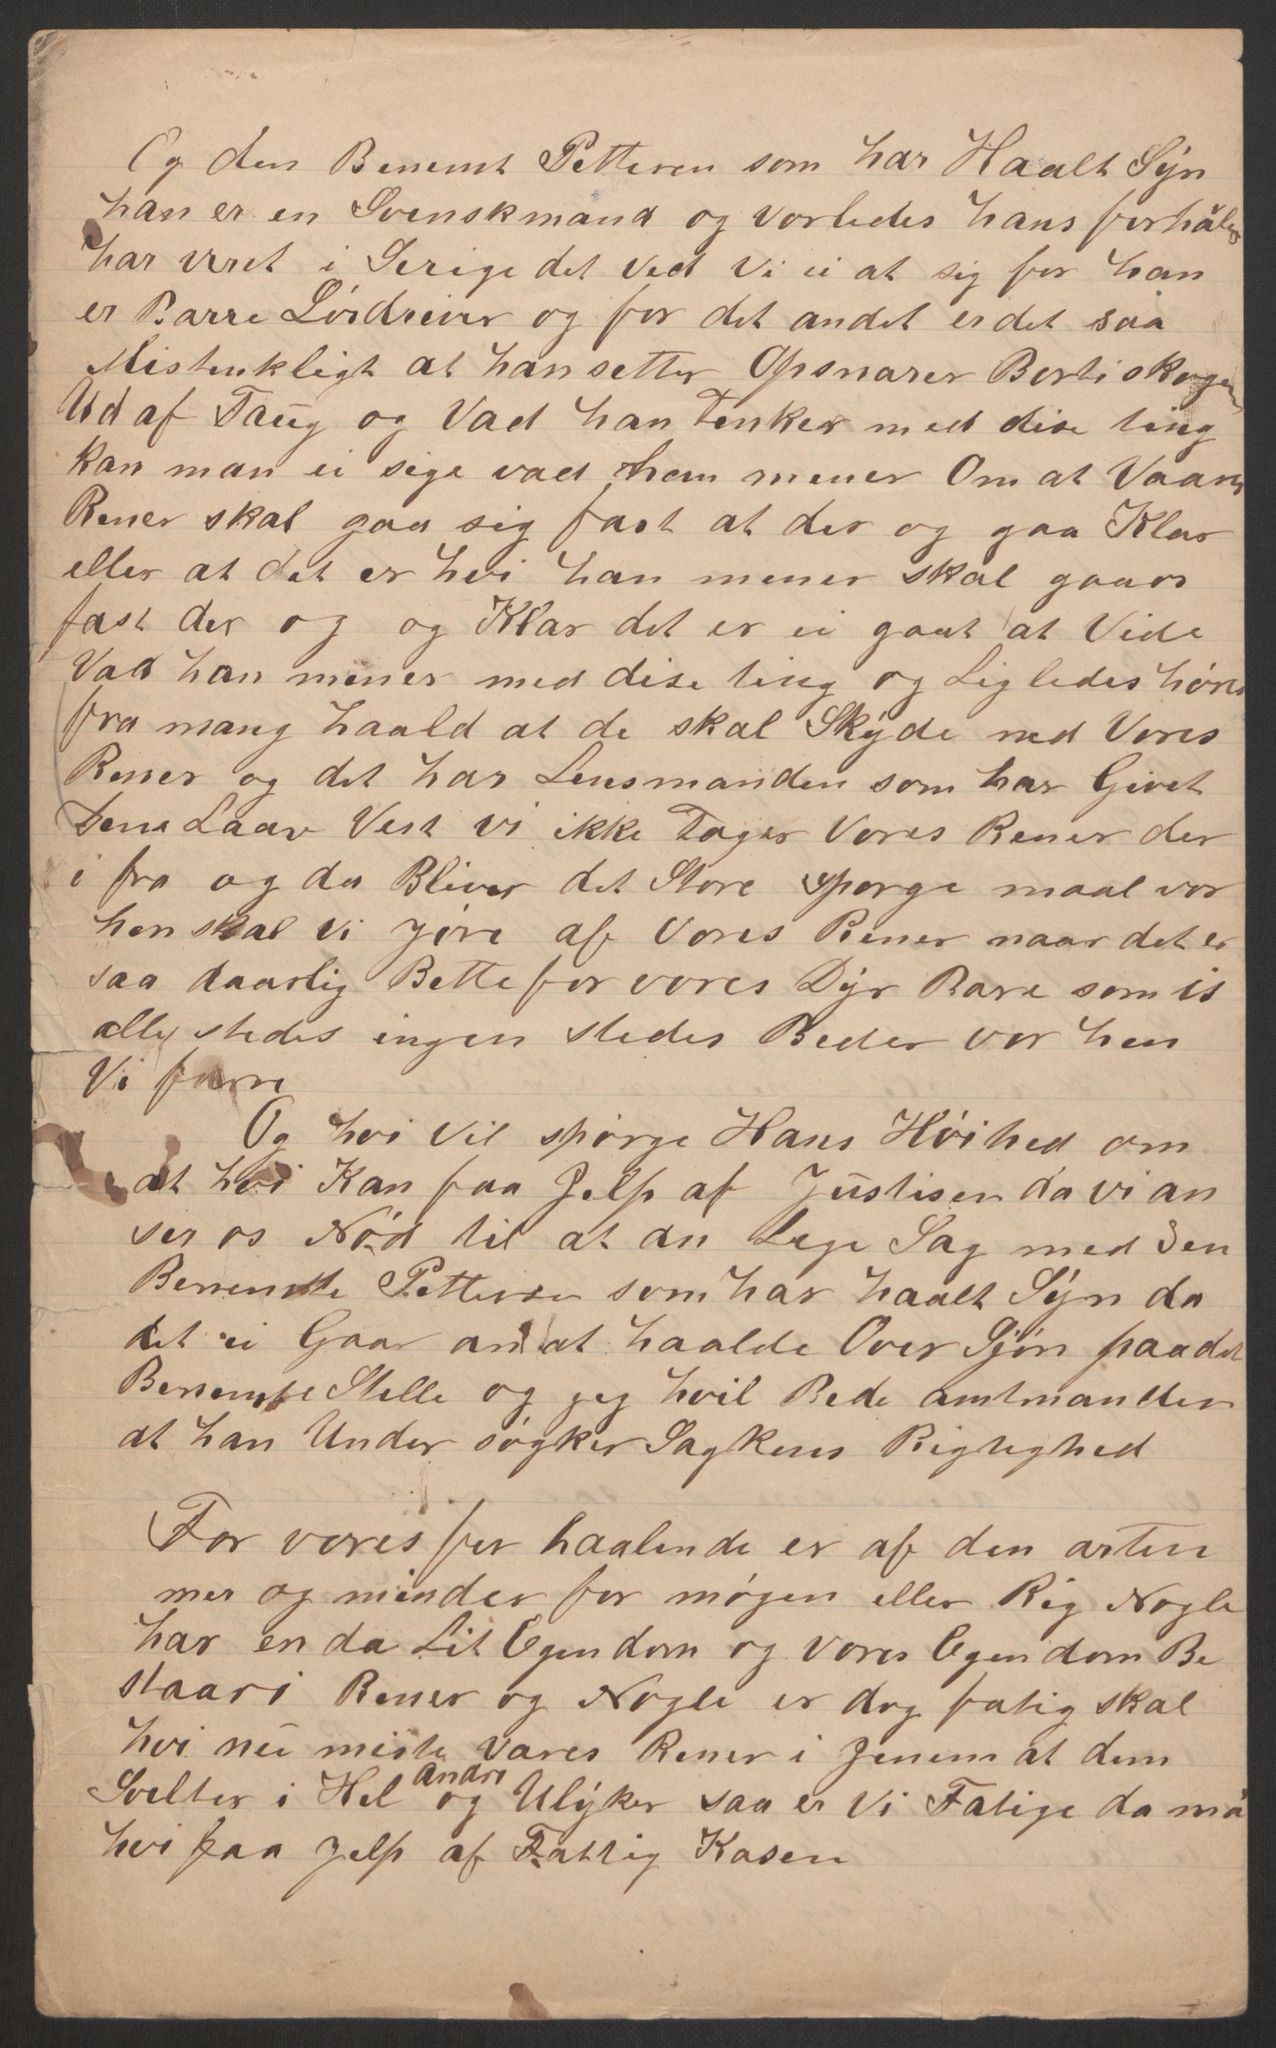 Og den Benemt Petteren som har Haalt Sýn
han er en Svenskmand og vorledes hans forhåler
har veret i Serige det ved vi ei at sig for han
er Barre Lósdriver og for det andet er det saa
Mistenkligt at han setter Opsnarer Borti skogen
Ud af Taug og Vad han Tenker med dise ting
kan man ei sige vad han mener Om at Vaares
Rener skal gaa sig fast at der og gaa Klar
eller at det er hvi han mener skal gaas
fast der og og Klar det er ei gaat at Vide
Vad han mener med dise ting og Ligledes høres
fra mang haald at de skal Skýde ned Vores
Rener og det har Lensmanden som har Givet
Dene Laav Vest vi ikke Tager Vores Rener der
i fra og da Bliver det Store sporge maal vor
hen skal vi jóre af Vores Rener naar det er
saa daarlig Bette for vores Dýr Bare som is
alle stedes ingen stedes Beder vor hen
Vi farre
Og hvi vil spórge Hans Hóihed om
at hvi Kan faa Jelp af Justisen da vi an
ser os Nód til at an Lege Sag med den
Benemte Petteren som har haalt Sýn da
det ei Gaar an at haalde Over Sjón paa det
Benemte Stelle og jeg hvil Bede amtmanden
at han Under sógker Sagkens Rigtighed
For vores for haalende er af den arten
mer og minder for mógen eller Rig Nogle
har en da Lit Egendom og vores Egendom Be
staar i Rener og Nogle er dog fatig skal
hvi nu miste Vares Rener i Jenem at dem
Svelter i Hel og andre Ulýker saa er Vi Fatige da må
hvi faa Jelp af Fattig Kasen